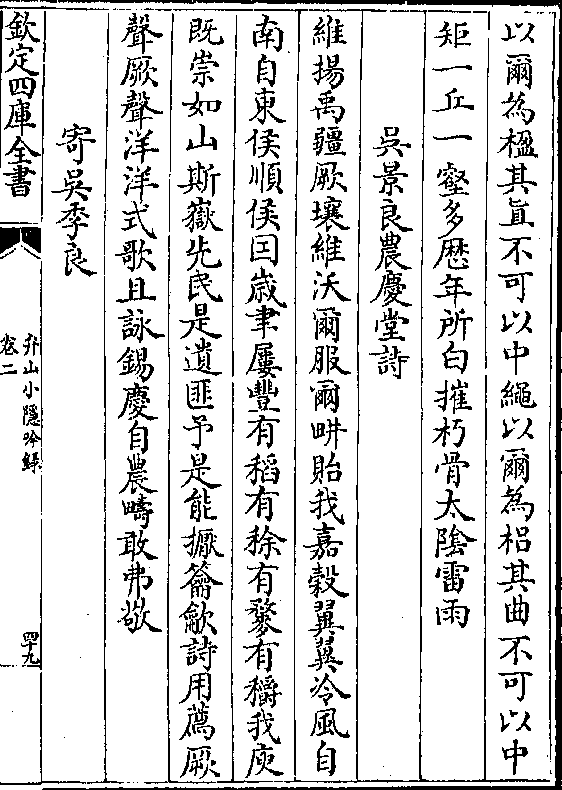 以爾為楹其直不可以中繩以爾為梠其曲不可以中
矩一丘一壑多歴年所白摧朽骨太隂雷雨
吳景良農慶堂詩
維揚禹疆厥壤維沃爾服爾畊貽我嘉穀翼翼冷風自
南自東侯順侯囙歳聿屢豐有稻有稌有䅘有穱我庾
既崇如山斯嶽先民是遺匪予是能擫籥龡詩用薦厥
聲厥聲洋洋式歌且詠錫慶自農疇敢弗欽
寄吳季良
欽定四庫全書
弁山小隱吟録
卷二
四十九